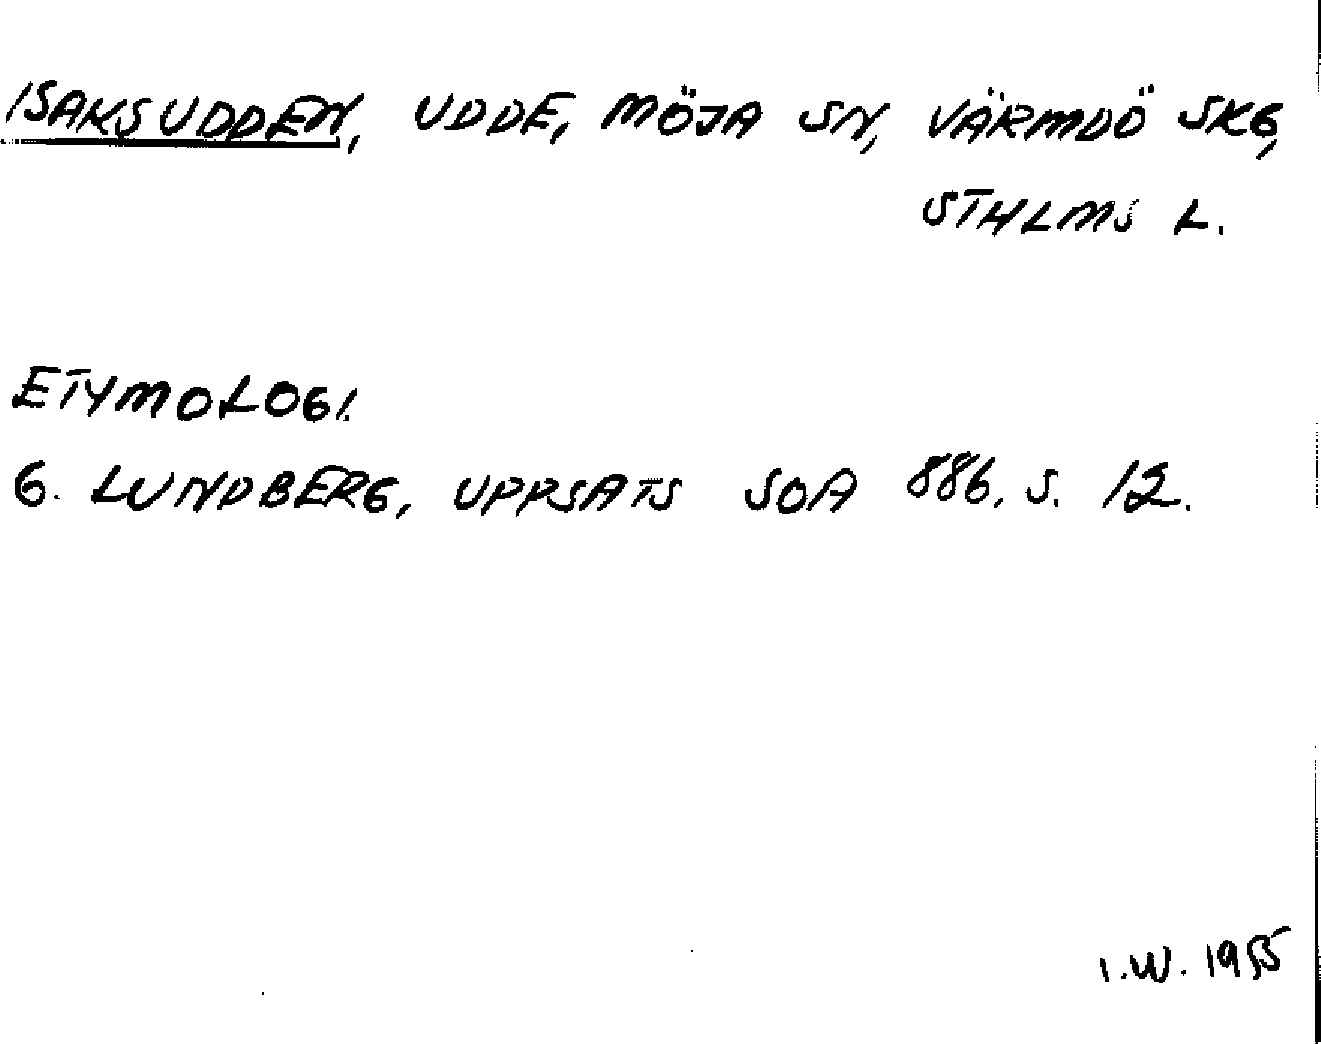 ISAKSUDDEN, UDDE, MÖJA SN, VÄRMDÖ SKG,
STHLMS L.
ETYMOLOGI.
G. LUNDBERG, UPPSATS SOA 886. S. 12.
I.W. 1955